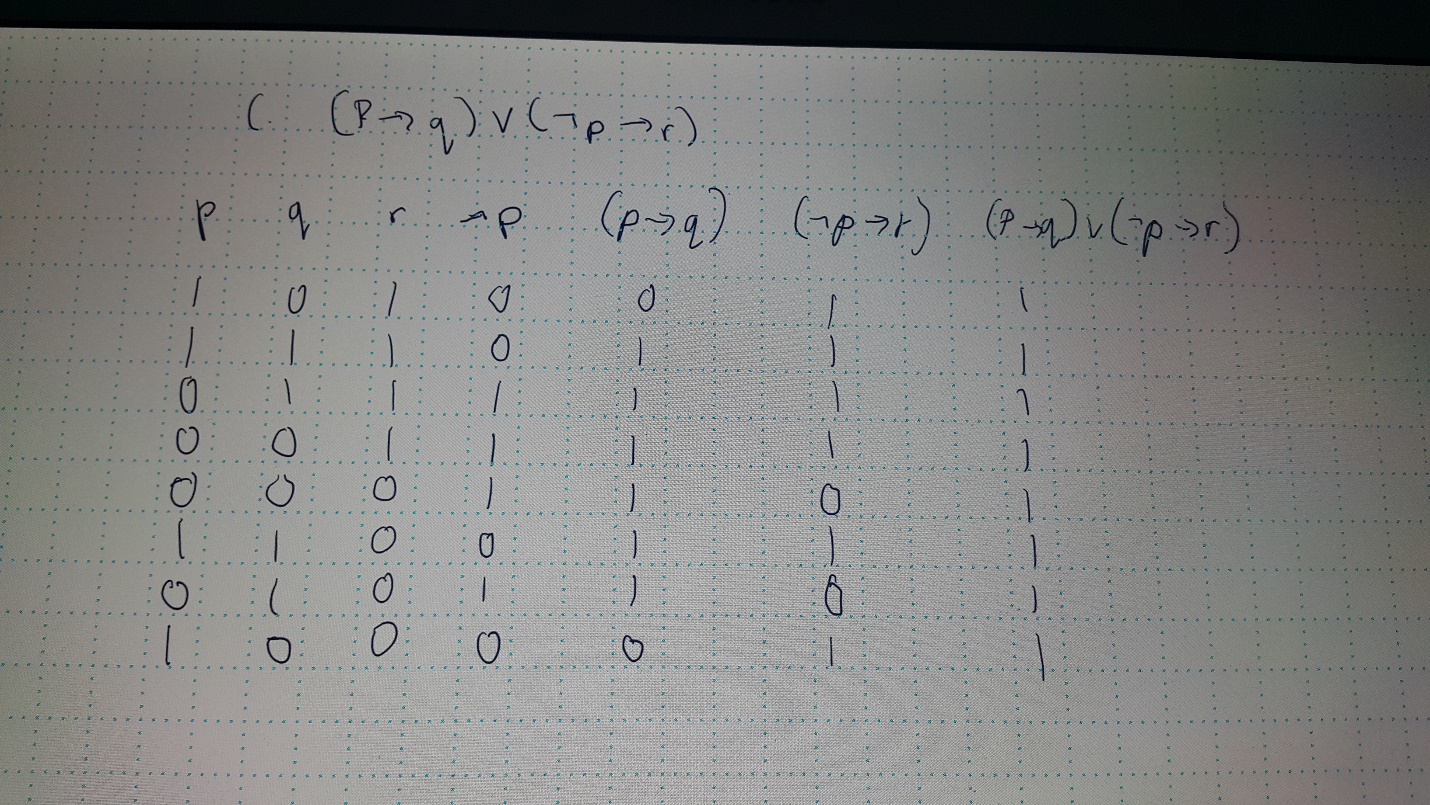 ( (P→q)∨(¬p→r)
p q r ¬p (p→q) (¬p→r) (P→q)∨(¬p→r)
1 0 1 0 0 1 1
1 1 1 0 1 1 1
0 1 1 1 1 1 1
0 0 1 1 1 1 1
0 0 0 1 1 0 1
1 1 0 0 1 1 1
0 1 0 1 1 0 1
1 0 0 0 0 1 1